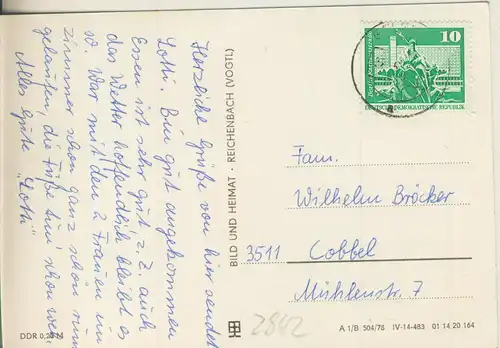 Herzliche Grüße von hier sendet
Lothi. Bin gut angekommen
Essen ist sehr gut z. Z. auch
das Wetter hoffendlich bleibt es
so. War mit den 2 Frauen im
Zimmer schon ganz schön rum
gelaufen, die Füße tun schon weh.
Alles Gute "Lothi"
BILD UND HEIMAT · REICHENBACH (VOGTL)
10
DEUTSCHE DEMOKRATISCHE REPUBLIK
Fam.
Wilhelm Bröcker
3511 Cobbel
Mühlenstr. 7
2862
DDR 0,20 M
A 1/B 504/78 IV-14-483 01 14 20 164